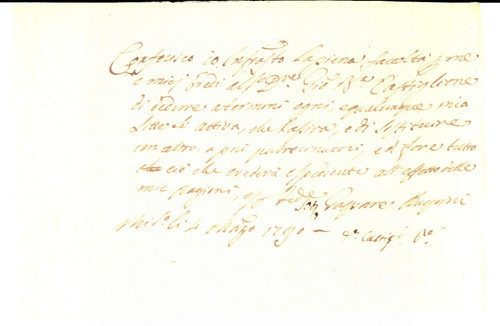 Conferisco io Infrasto la piena facoltà p me
e miei Eredi al Sigr Gio Bta Castiglione
di ridurre a termini ogni, e qualunque mia
Litte sì attiva, che Passiva, e di sostituire
un altro, o più patrocinatori, e di fare tutto
ciò che crederà espediente all'effetto delle
mie ragioni,
Gaspare
li 4 Marzo 1790 –